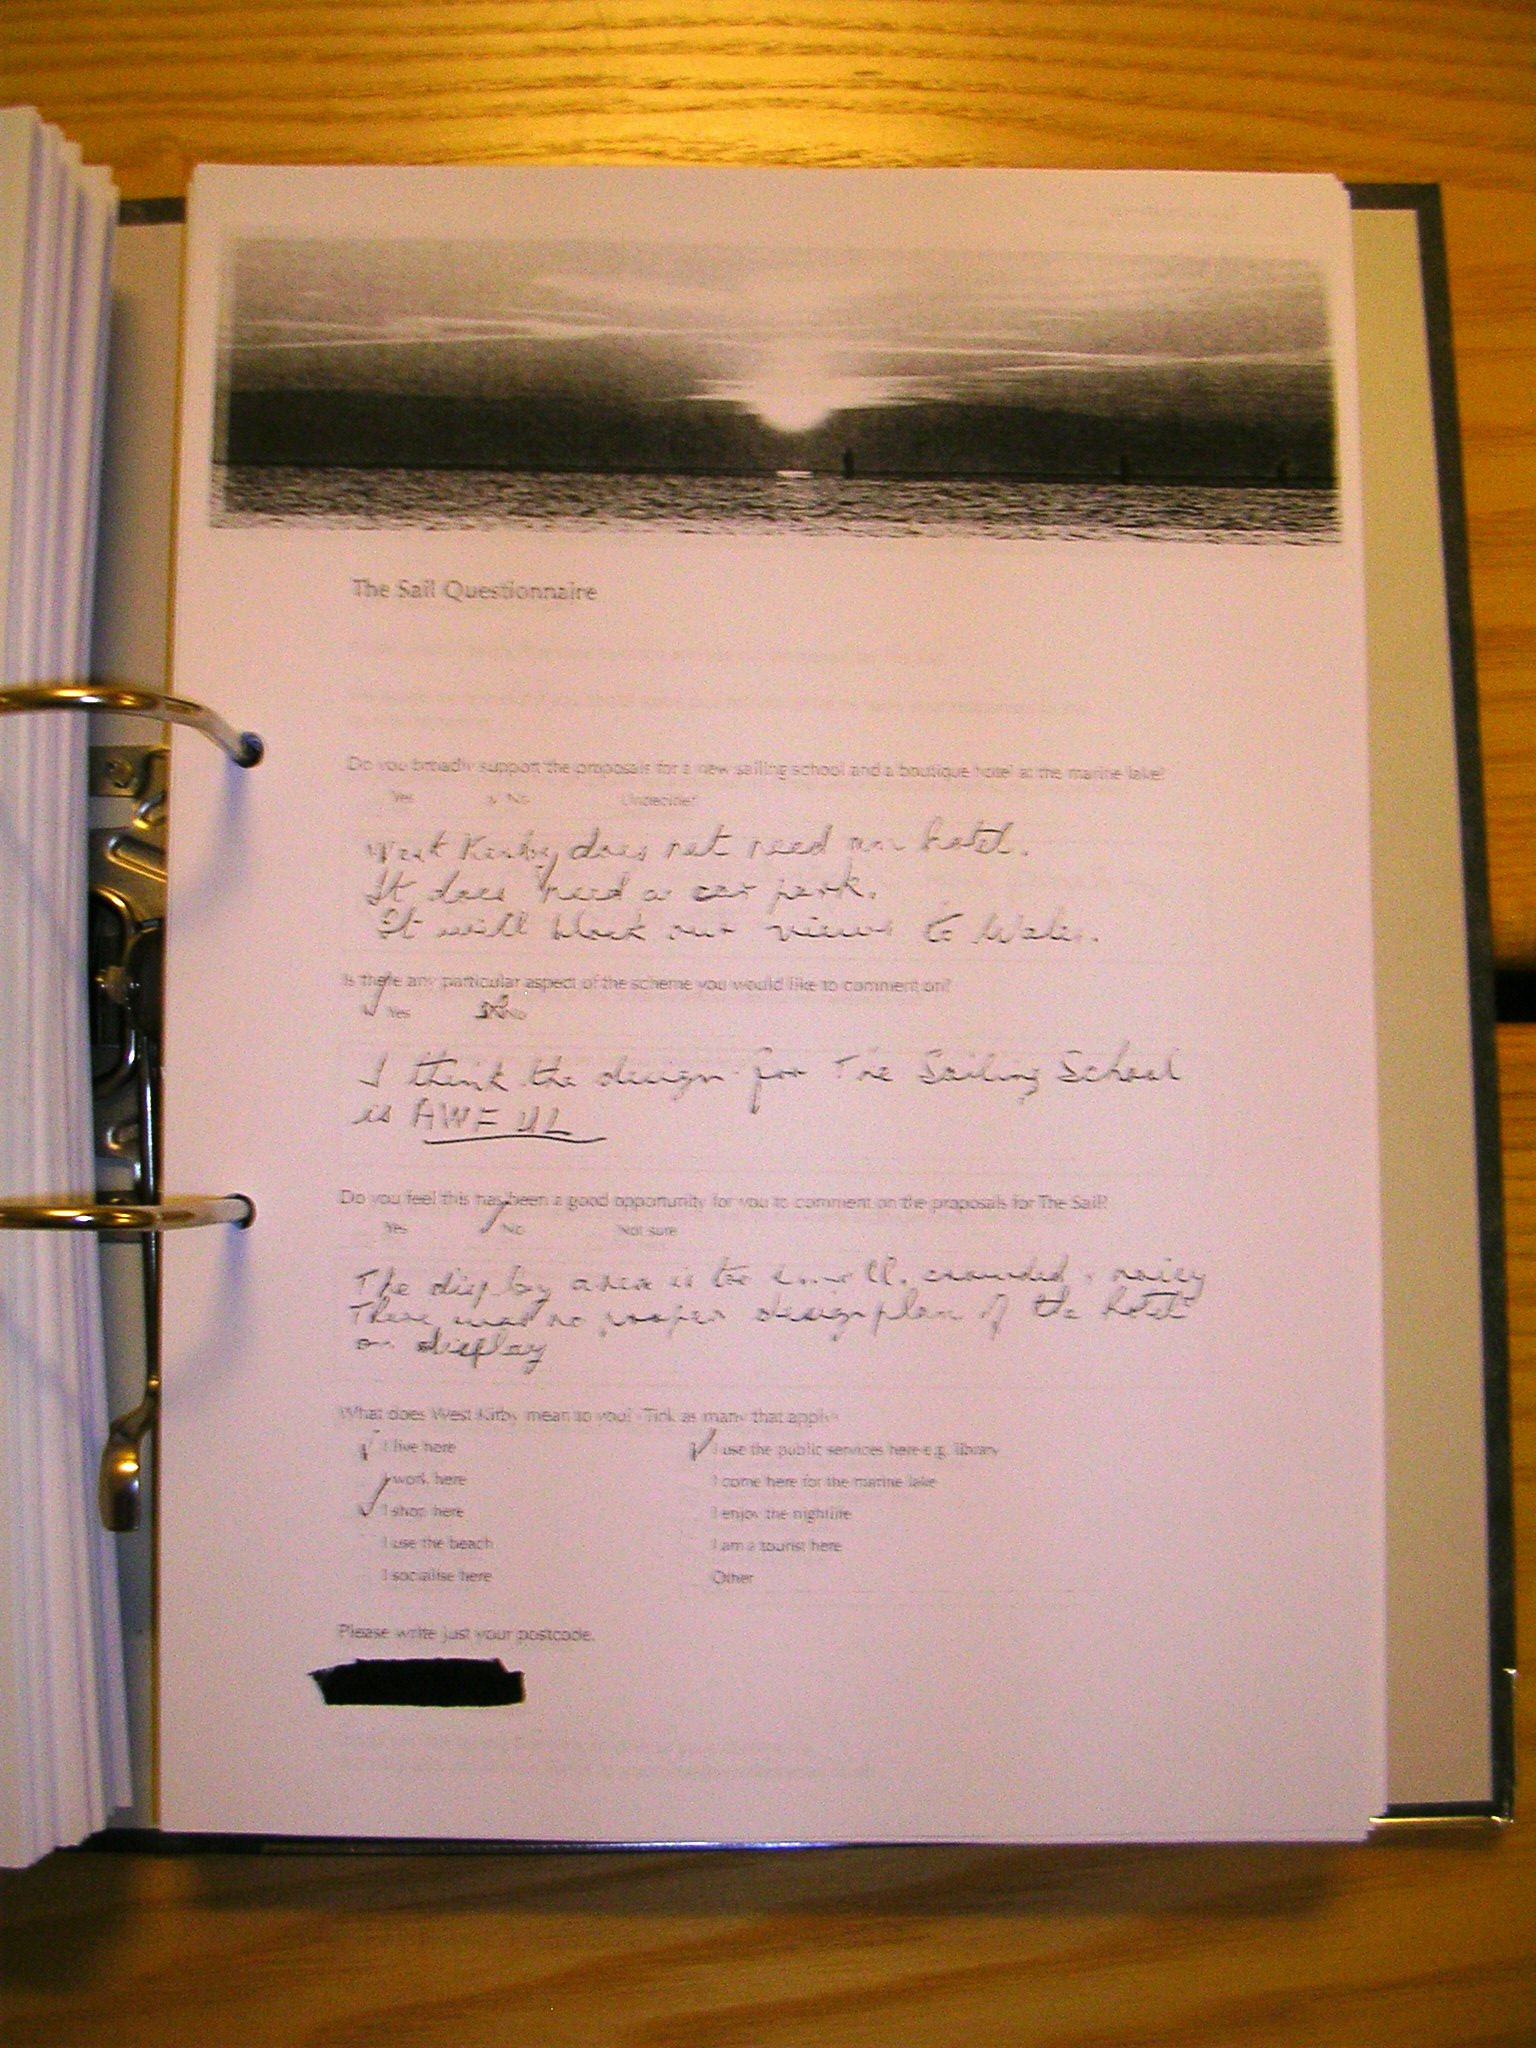 The Sail Questionnaire
Do you broadly support the proposals for a new sailing school and a boutique hotel at the marine lake?
Yes No Undecided
West Kirby does not need an hotel.
It does need a car park.
It will block our views to Wales.
Is there any particular aspect of the scheme you would like to comment on?
Yes No
I think the design for The Sailing School
is AWFUL
Do you feel this has been a good opportunity for you to comment on the proposals for The Sail?
Yes No Not sure
The display area is too small, crowded, noisy
There was no proper design plan of the hotel
on display
What does West Kirby mean to you? Tick as many that apply
I live here I use the public services here e.g. library
I work here I come here for the marine lake
I shop here I enjoy the nightlife
I use the beach I am a tourist here
I socialise here Other
Please write just your postcode.